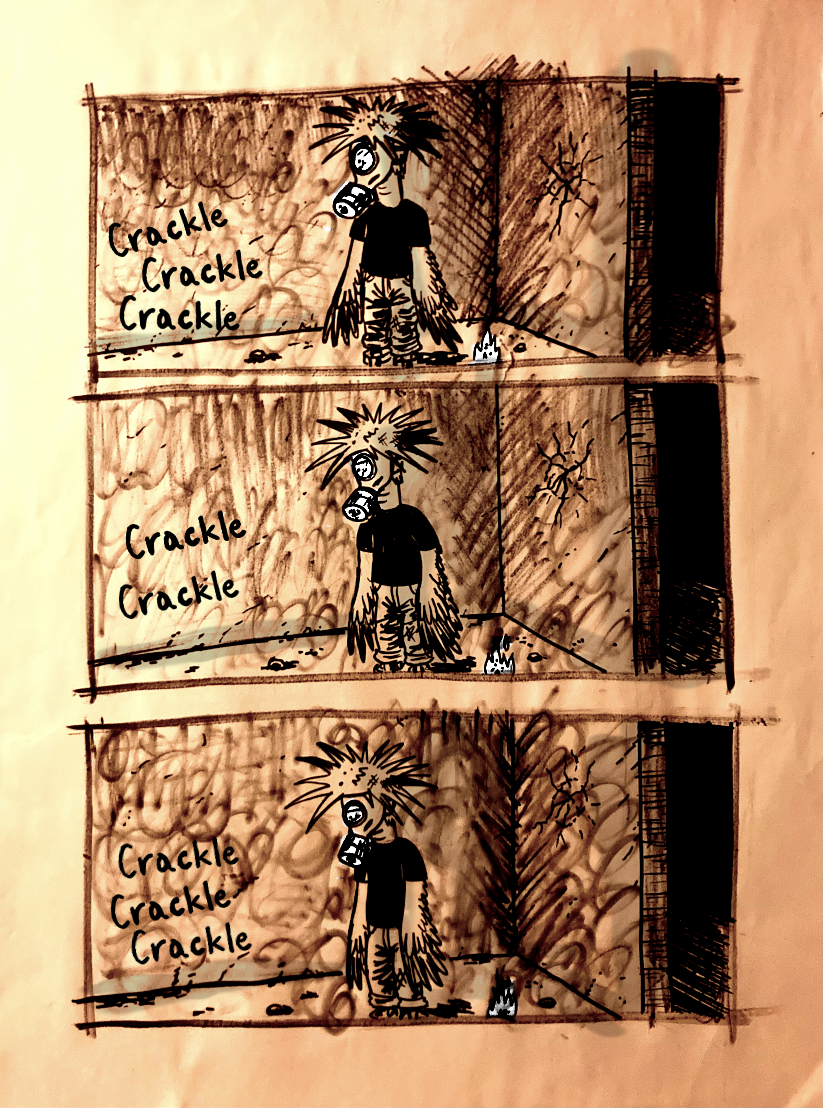 Crackle
Crackle
Crackle
Crackle
Crackle
Crackle
Crackle
Crackle